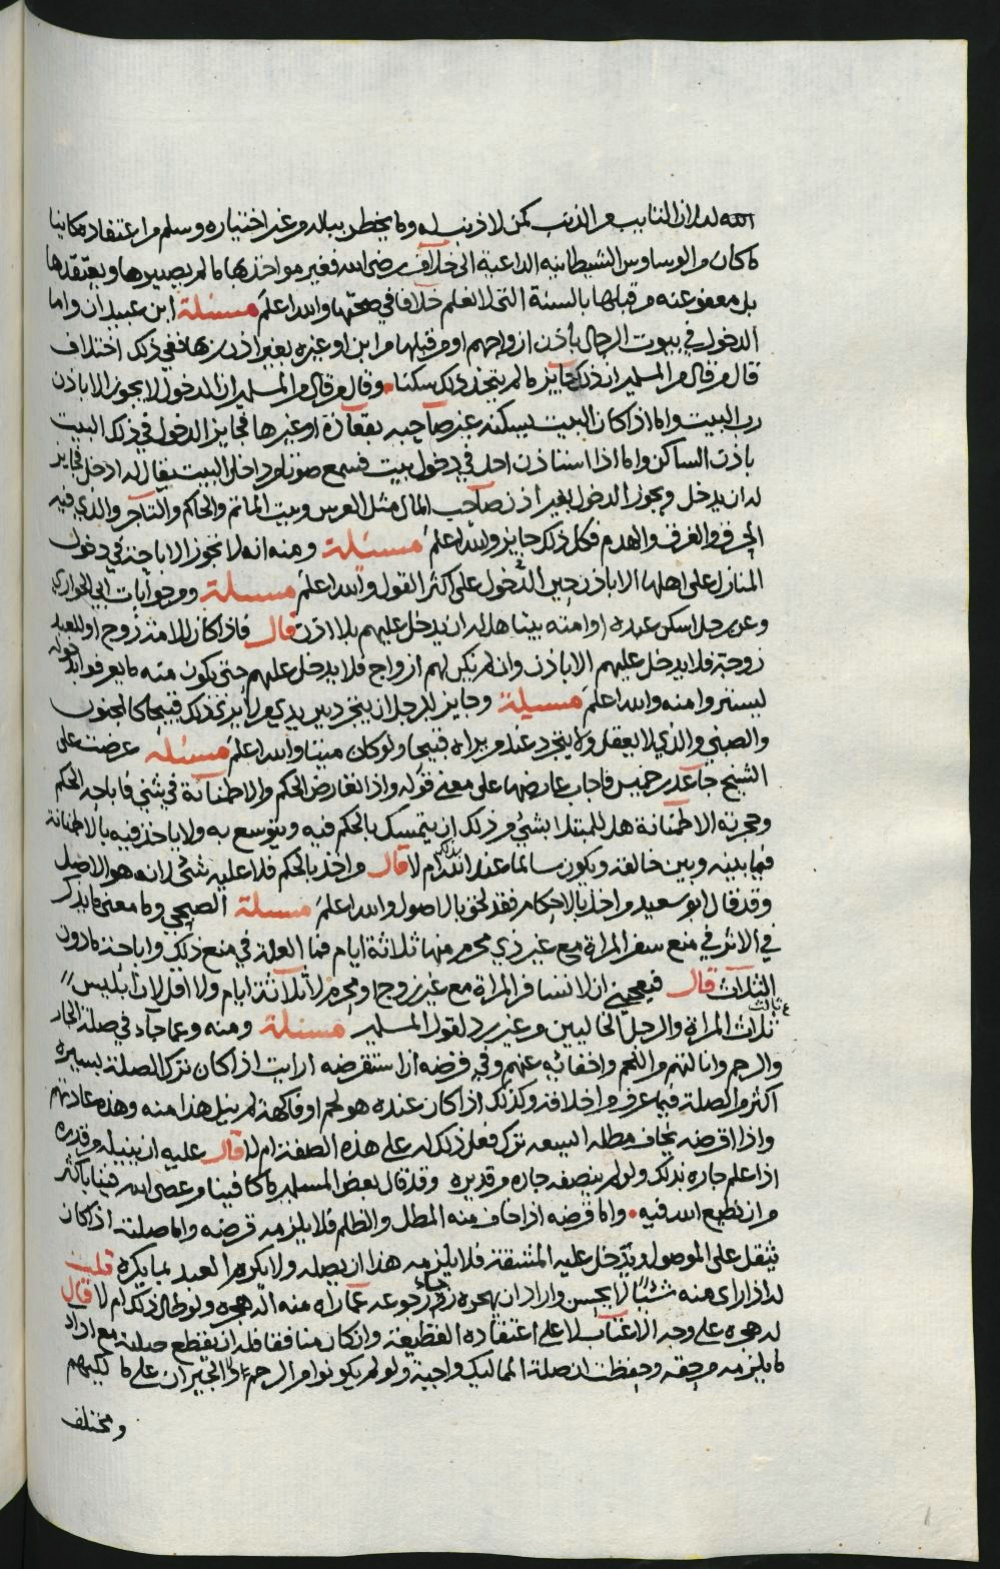 الله له ان التايب من الذنب كمن لا ذنب له وما يخطر بباله من غير اختياره وسلم من اعتقاده كاينا
ما كان من الوساوس الشيطانيه الداعية الى خلاف رضى الله فغير مواخذ بها ما لم يصيرها ويعتقدها
بل معفو عنه من قبلها بالسنة التى لا نعلم خلافا في صحتها والله اعلم مسئلة ابن عبيدان واما
الدخول في بيوت الرجال باذن ازواجهم او من قبلها من ابن او غيره بغير اذن ربها ففي ذلك اختلاف
قال من قال من المسلمين ان ذلك جايز ما لم يتخذ ذلك سكنا وقال من قال من المسلمين ان الدخول لا يجوز الا باذن
رب البيت واما اذا كان البيت يسكنه غير صاحبه بقعادة او غيرها فجايز الدخول في ذلك البيت
باذن الساكن واما اذا استاذن احد في دخول بيت فسمع صوتا من داخل البيت يقال له ادخل فجايز
له ان يدخل ويجوز الدخول بغير اذن صاحب المال مثل العرس وبيت الماتم والحاكم والتاجر والذي فيه
الحرق والغرق والهدم فكل ذلك جايز والله اعلم مسئلة ومنه انه لا تجوز الاباحة في دخول
المنازل على اهلها الا باذن حين الدخول على اكثر القول والله اعلم مسئلة ومن جوابات ابي الحواري
وعن رجل اسكن عبده او امته بيتا هل له ان يدخل عليهم بلا اذن قال فاذا كان للامة زوج او للعبد
زوجة فلا يدخل عليهم الا باذن وان لم يكن لهم ازواج فلا يدخل عليهم حتى يكون منه ما يعرفوا بدخوله
ليستتروا منه والله اعلم مسيلة وجايز للرجل ان يتجرد بين يدي من لا يرى ذلك قبيحا كالمجنون
والصبي والذي لا يعقل ولا يتجرد عند من يراه قبيحا ولو كان ميتا والله اعلم مسئله عرضت على
الشيخ جاعد بن خميس فاجاب عارضها على معنى قوله واذا تعارض الحكم والاطمنانة في شئ فاباحه الحكم
وحجرته الاطمنانة هل للمبتلا بشئ من ذلك ان يتمسك بالحكم فيه ويتوسع به ولا ياخذ فيه بالاطمنانة
فيما بينه وبين خالقه ويكون سالما عند الله بذلك ام لا قال من اخذ بالحكم فلا عليه شئ لانه هو الاصل
وقد قال ابو سعيد من اخذ بالاحكام فقد لحق بالاصول والله اعلم مسئلة الصبحي وما معنى ما يذكر
في الاثر في منع سفر المراة مع غير ذي محرم منها ثلاثة ايام فما العلة في منع ذلك واباحة ما دون
الثلاث قال فيعجبني ان لا تسافر المراة مع غير زوج او محرم لا ثلاثة ايام ولا اقل لان ابليس
ثالث
ثلاث المراة والرجل الخاليين من غير رد لقول المسلمين مسئلة ومنه وعما جاء في صلة الجار
والرحم وانالتهم من اللحم واخفائه عنهم وفي قرضه ان استقرضه ارايت اذا كان ترك الصلة يسيره
اكثر من الصلة فيما عرف من اخلاقه وكذلك اذا كان عنده هو لحم او فاكهة لم ينل هذا منه وهذه عادتهم
واذا اقرضه يخاف مطله ايسعه ترك فعل ذلك له على هذه الصفة ام لا قال عليه ان ينيله من قدره
اذا علم جاره بذلك ولو لم ينصفه جاره من قديره وقد قال بعض المسلمين ما كافينا من عصى الله فينا باكثر
من ان نطيع الله فيه واما قرضه اذا خاف منه المطل والظلم فلا يلزمه قرضه واما صلته اذا كان
تثقل على الموصول ويدخل عليه المشقة فلا يلزمه هذا ان يصله ولا يكرم العبد بما يكره قلت
له اذا راى منه شيئا لا يحسن واراد ان يهجره رجاء رجوعه عما راه منه اله هجره ولو طال ذلك ام لا قال
له هجره على وجه الاعتاب لا على اعتقاده القطيعة وان كان منافقا فله ان يقطع صلته مع اداء
ما يلزمه من حقه وحفظت ان صلة المماليك واجبة ولو لم يكونوا من الرحم ولا الجيران على مالكيهم
ومختلف